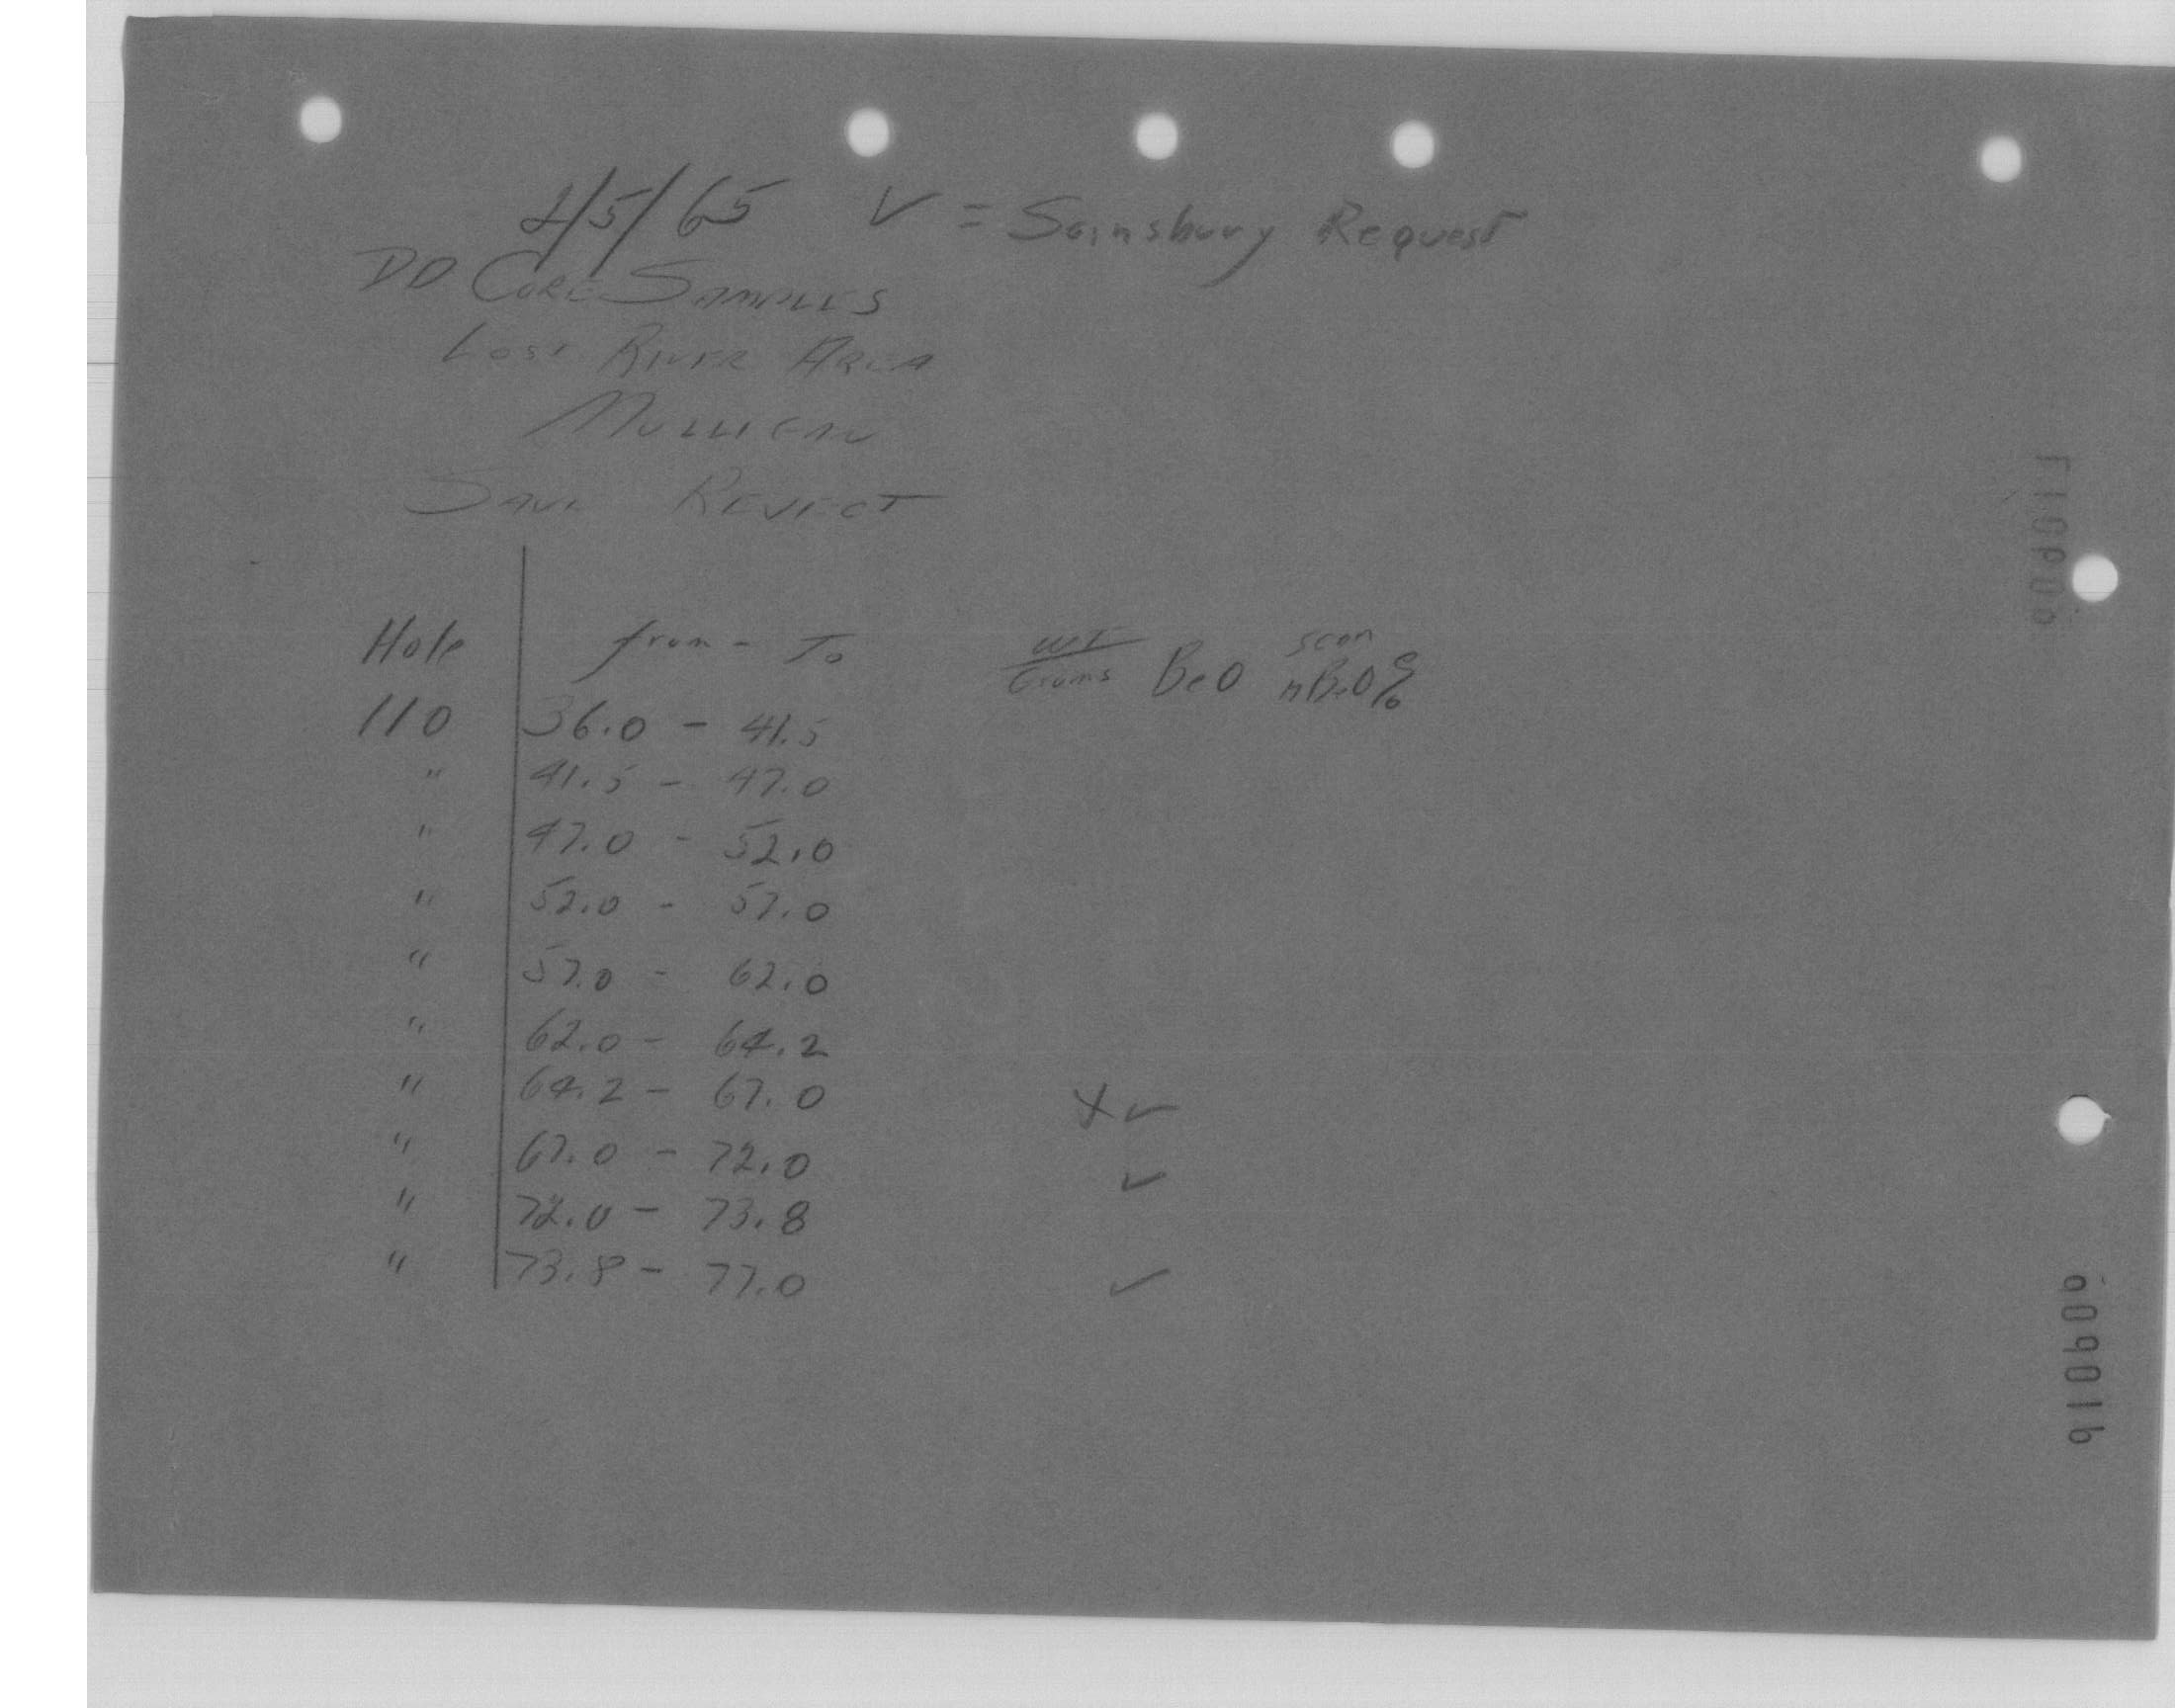 2/5/65 ✓ = Sainsbury Request
DD CORE SAMPLES
LOST RIVER AREA
MULLIGAN
SAVE REJECT
Hole from - To wt/Grams BeO scan nBeO%
110 36.0 - 41.5
" 41.5 - 47.0
" 47.0 - 52.0
" 52.0 - 57.0
" 57.0 - 62.0
" 62.0 - 64.2
" 64.2 - 67.0 X ✓
" 67.0 - 72.0 ✓
" 72.0 - 73.8
" 73.8 - 77.0 ✓